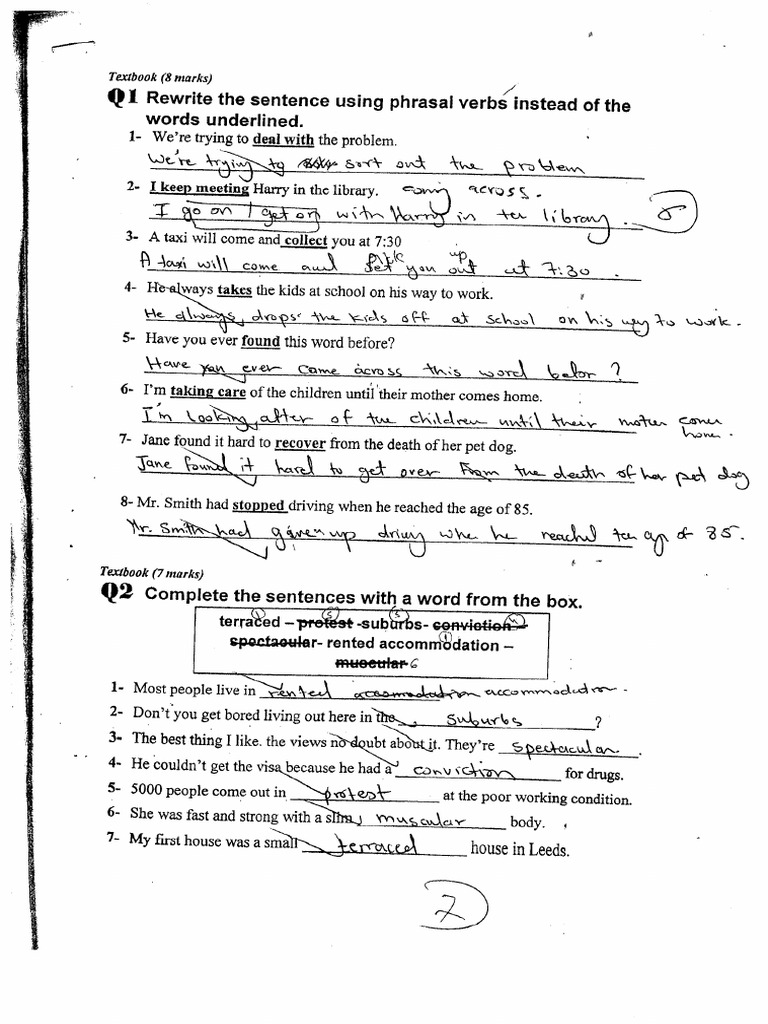 Textbook (8 marks)
Q1 Rewrite the sentence using phrasal verbs instead of the
words underlined.
1- We're trying to deal with the problem.
We're trying to sort out the problem
2- I keep meeting Harry in the library. across.
I go on / get on with Harry in the library.
3- A taxi will come and collect you at 7:30
up
A taxi will come and you out at 7:30.
4- He always takes the kids at school on his way to work.
He always drops the kids off at school on his way to work.
5- Have you ever found this word before?
Have you ever come across this word befor?
6- I'm taking care of the children until their mother comes home.
I'm looking after of the children until their mother comes
home.
7- Jane found it hard to recover from the death of her pet dog.
Jane found it hard to get over from the death of her pet dog
8- Mr. Smith had stopped driving when he reached the age of 85.
Mr. Smith had given up driving when he reached the age of 85.
Textbook (7 marks)
Q2 Complete the sentences with a word from the box.
terraced – protest -suburbs- conviction –
spectacular- rented accommodation –
muscular 6
1- Most people live in rented accommodation.
2- Don't you get bored living out here in the suburbs ?
3- The best thing I like. the views no doubt about it. They're spectacular.
4- He couldn't get the visa because he had a conviction for drugs.
5- 5000 people come out in protest at the poor working condition.
6- She was fast and strong with a slim, muscular body.
7- My first house was a small terraced house in Leeds.
7